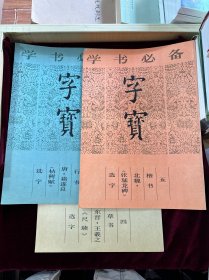 学书必备
字寳
行书
唐·褚遂良
《枯树赋》
选字
学书必备
字寳
五
楷书
北魏·
《张猛龙碑》
选字
四
草书
东晋·王羲之
选字